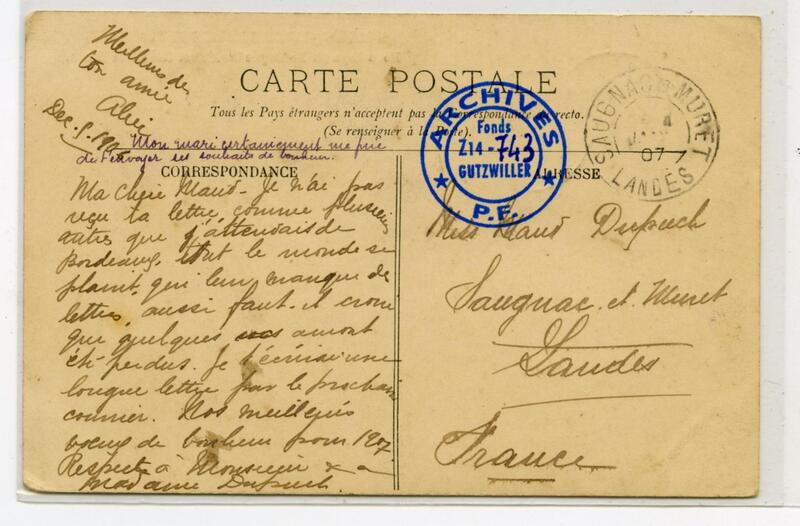 Meilleurs de
ton amie
Alice
Dec. 8.
CARTE POSTALE
Tous les Pays étrangers n'acceptent pas la Correspondance au recto.
(Se renseigner à la Poste).
Mon mari certainement me prie
de t'envoyer ses souhaits de bonheur.
CORRESPONDANCE
ADRESSE
Ma chère Maud - Je n'ai pas
reçu ta lettre, comme plusieurs
autres que j'attendais de
Bordeaux, tout le monde se
plaint, qui leur manque de
lettres, aussi faut-il croire
que quelques auront
été perdus. Je t'écrirai une
longue lettre par le prochain
courrier. Nos meilleurs
voeux de bonheur pour 1907
Respects à Monsieur & à
Madame Dupuch.
Miss Maud Dupuch
Saugnac et Muret
Landes
France
ARCHIVES
Fonds
Z14-743
GUTZWILLER
P.F.
SAUGNAC-ET-MURET
07
LANDES